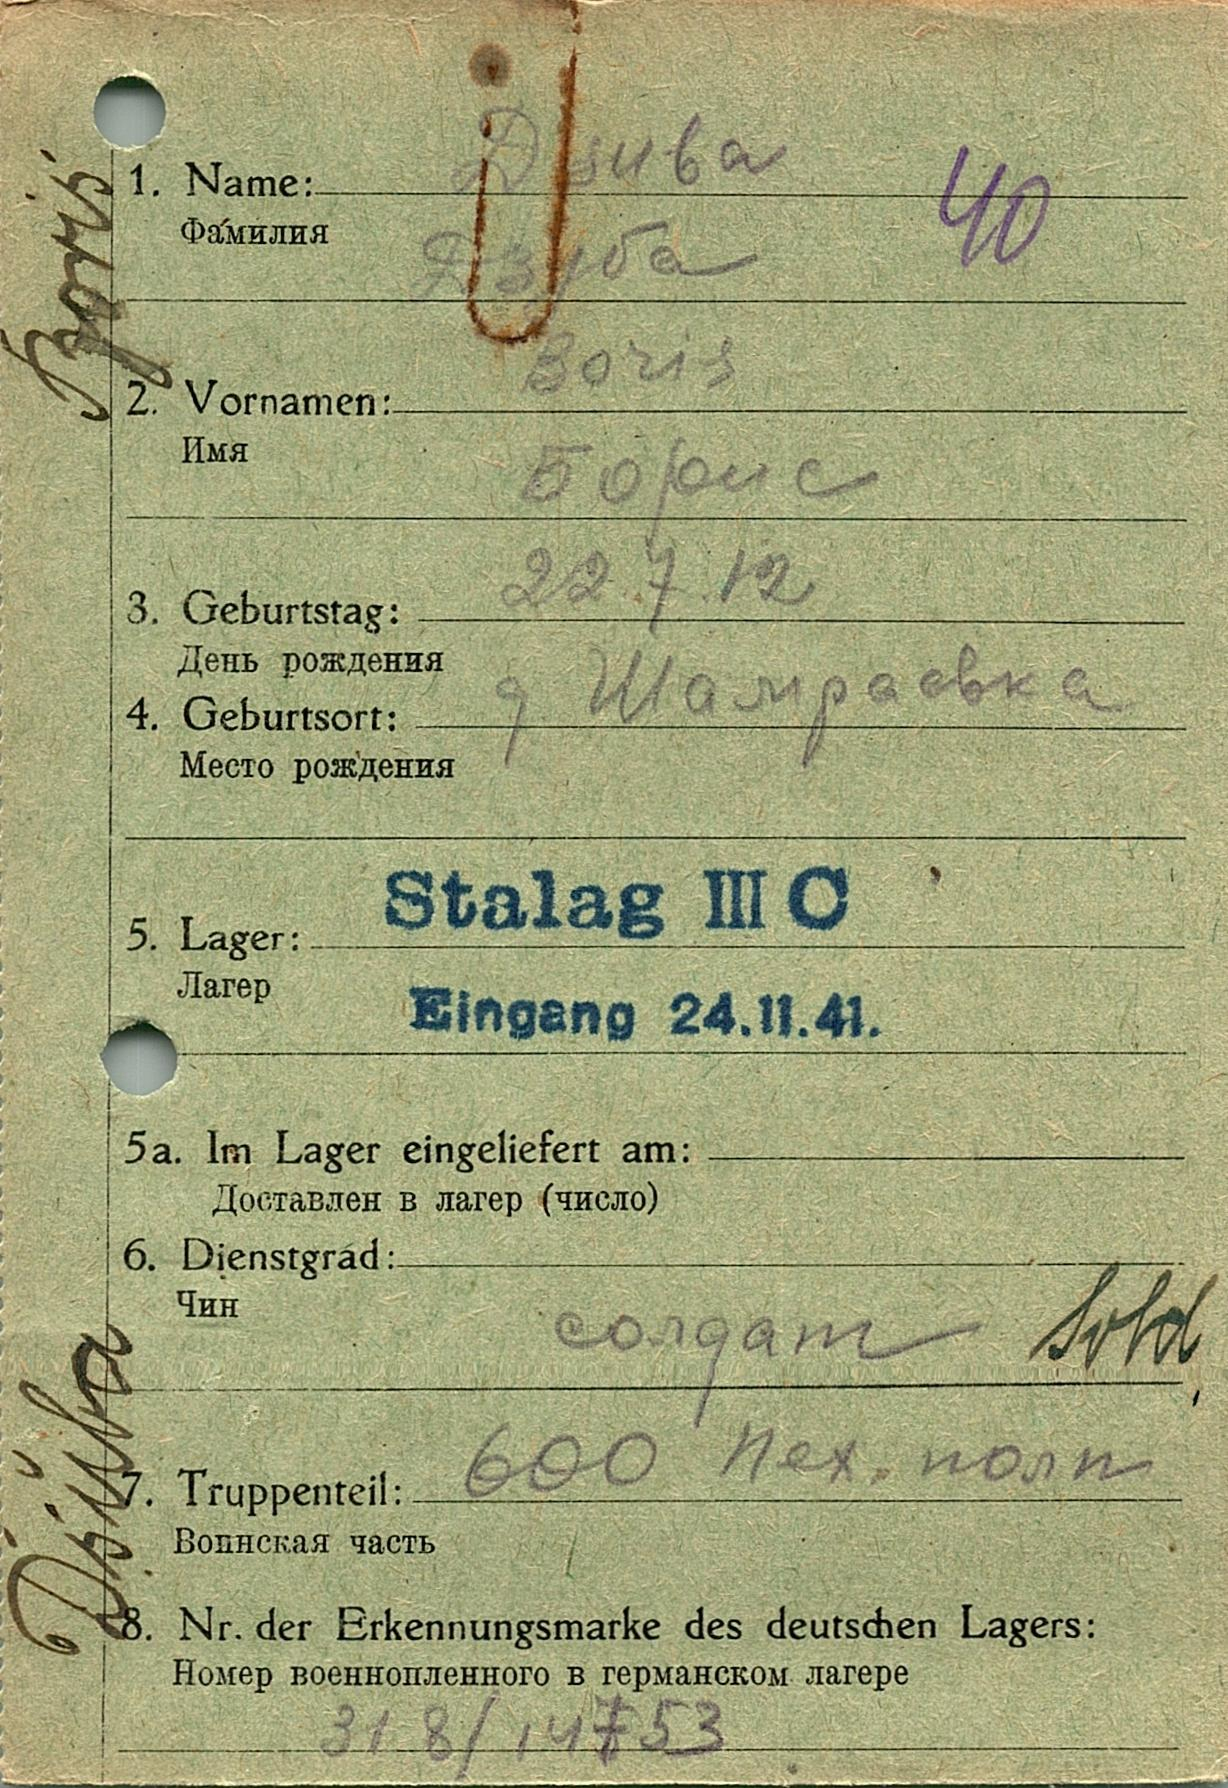 Boris
Dsiuba
1. Name: Дзива
40
Фамилия Дзуба
2. Vornamen: Boris
Имя Борис
3. Geburtstag: 22.7.12
День рождения
4. Geburtsort: д Шамраевка
Место рождения
Stalag III C
5. Lager:
Лагер
Eingang 24.11.41.
5a. Im Lager eingeliefert am:
Доставлен в лагер (число)
6. Dienstgrad:
Чин солдат Sold,
7. Truppenteil: 600 пех. полк
Воинская часть
8. Nr. der Erkennungsmarke des deutschen Lagers:
Номер военнопленного в германском лагере
318/14753